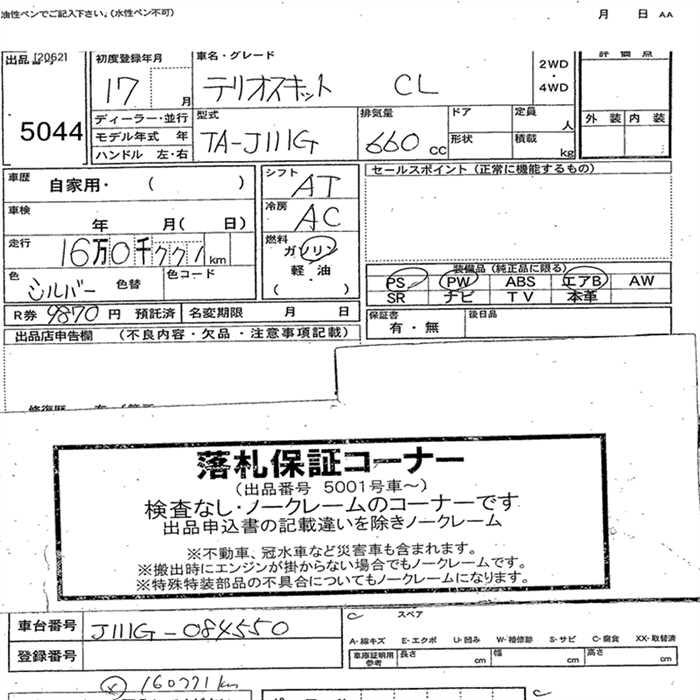 油性ペンでご記入下さい。(水性ペン不可) 月 日 AA
出品 [2062] 初度登録年月 車名・グレード 2WD・4WD 評価点
17 月 テリオスキット CL
5044 ディーラー・並行 型式 排気量 ドア 定員 人 外装 内装
モデル年式 年 TA-J111G 660 CC 形状 積載 kg
ハンドル 左・右
車歴 自家用・( ) シフト AT セールスポイント (正常に機能するもの)
車検 年 月( 日) 冷房 AC
走行 16万0千771 km 燃料 ガソリン
軽・油
( ・ )
色 シルバー 色替 色コード
装備品 (純正品に限る)
PS PW ABS エアB AW
SR ナビ TV 本革
R券 9870 円 預託済 名変期限 月 日 保証書 有・無 後日品
出品店申告欄 (不良内容・欠品・注意事項記載)
落札保証コーナー
(出品番号 5001号車～)
検査なし・ノークレームのコーナーです
出品申込書の記載違いを除きノークレーム
※不動車、冠水車など災害車も含まれます。
※搬出時にエンジンが掛からない場合でもノークレームです。
※特殊特装部品の不具合についてもノークレームになります。
車台番号 J111G-084550 スペア
A-線キズ E-エクボ U-凹み W-補修跡 S-サビ C-腐食 XX-取替済
登録番号 車庫証明用参考 長さ cm 幅 cm 高さ cm
160771km